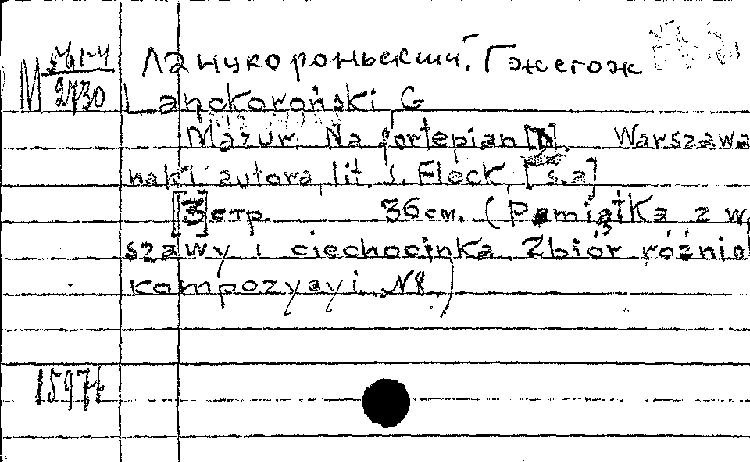 М 2730
Ланцкороньский. Гжегож
Lanckoroński G
Mazur. Na fortepian. Warszawa
nakł. autora, lit. J. Fleck, [s.a]
[3] стр. 36 см. (Pamiątka z W
szawy i ciechocinka. Zbiór różnio
kompozycyi N8.)